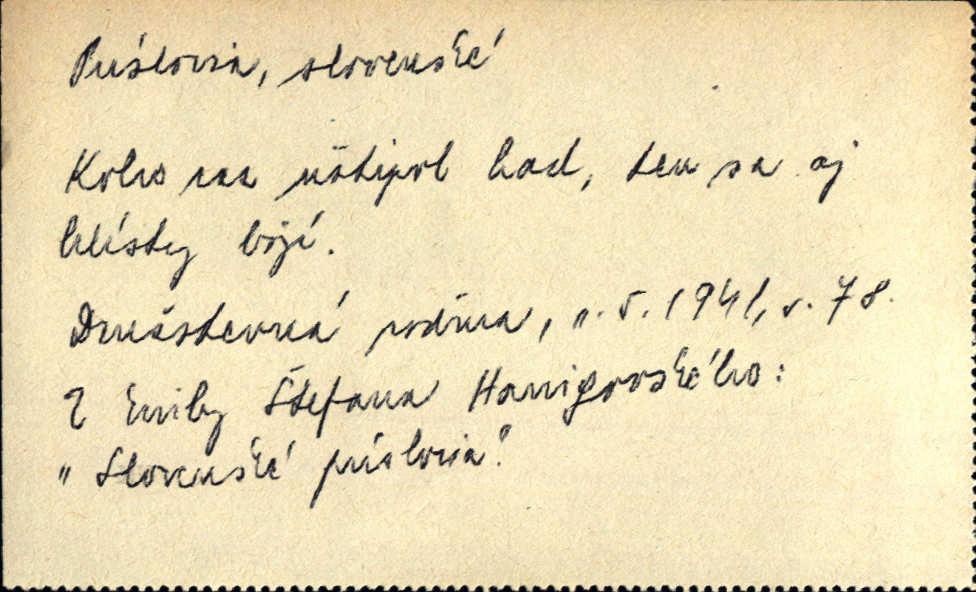 Príslovia, slovenské
Koho raz uštipol had, ten sa aj
hlísty bojí.
Družstevná rodina, r. 5. 1941, s. 78.
Z knihy Štefana Hanigovského:
"Slovenské príslovia".